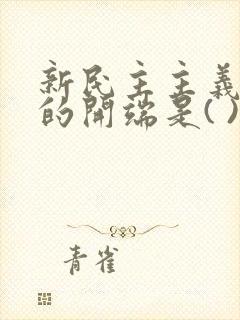 新民主主義
的開端是( )
青雀